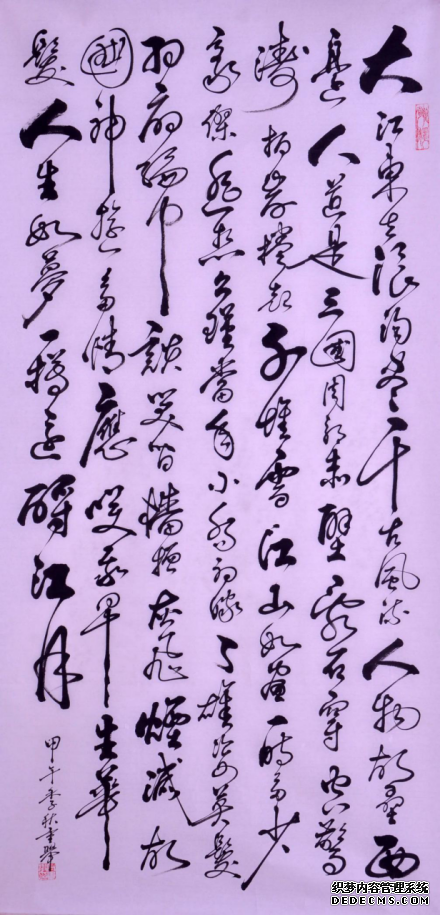 大江東去浪淘盡千古風流人物故壘西
邊人道是三國周郎赤壁亂石穿空驚
濤拍岸捲起千堆雪江山如畫一時多少
豪傑遙想公瑾當年小喬初嫁了雄姿英髮
羽扇綸巾談笑間檣櫓灰飛煙滅故
國神遊多情應笑我早生華
髮人生如夢一樽還酹江月
甲午季秋
织梦内容管理系统
DEDECMS.COM